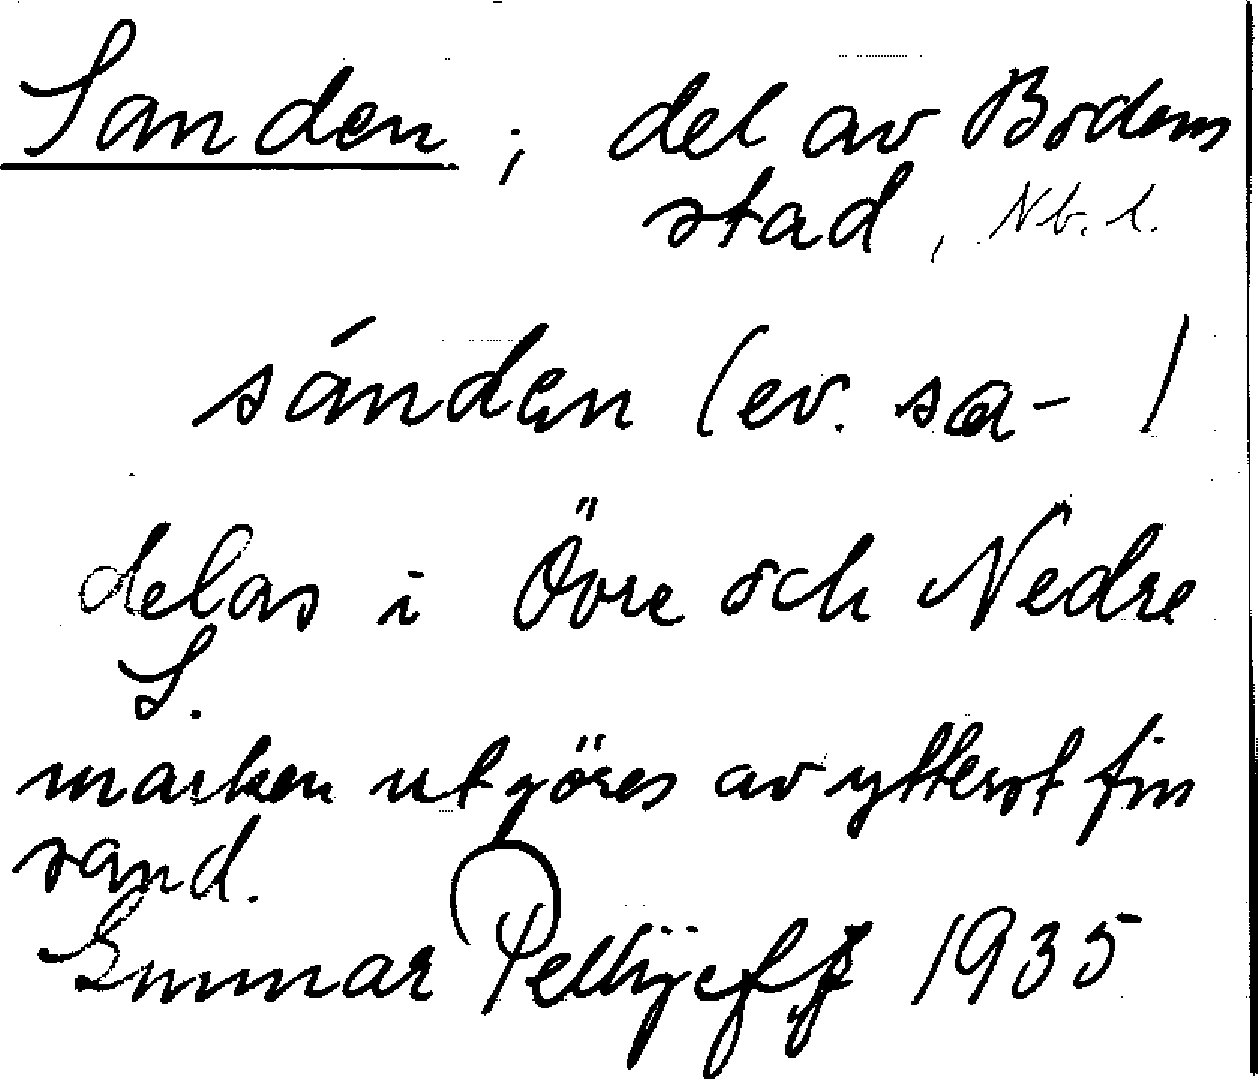 Sanden ; del av Bodens
stad , Nb. l.
sánden (ev. sa- )
delas i Övre och Nedre
S.
marken utgöres av ytterst fin
sand.
Gunnar Pellijeff 1935